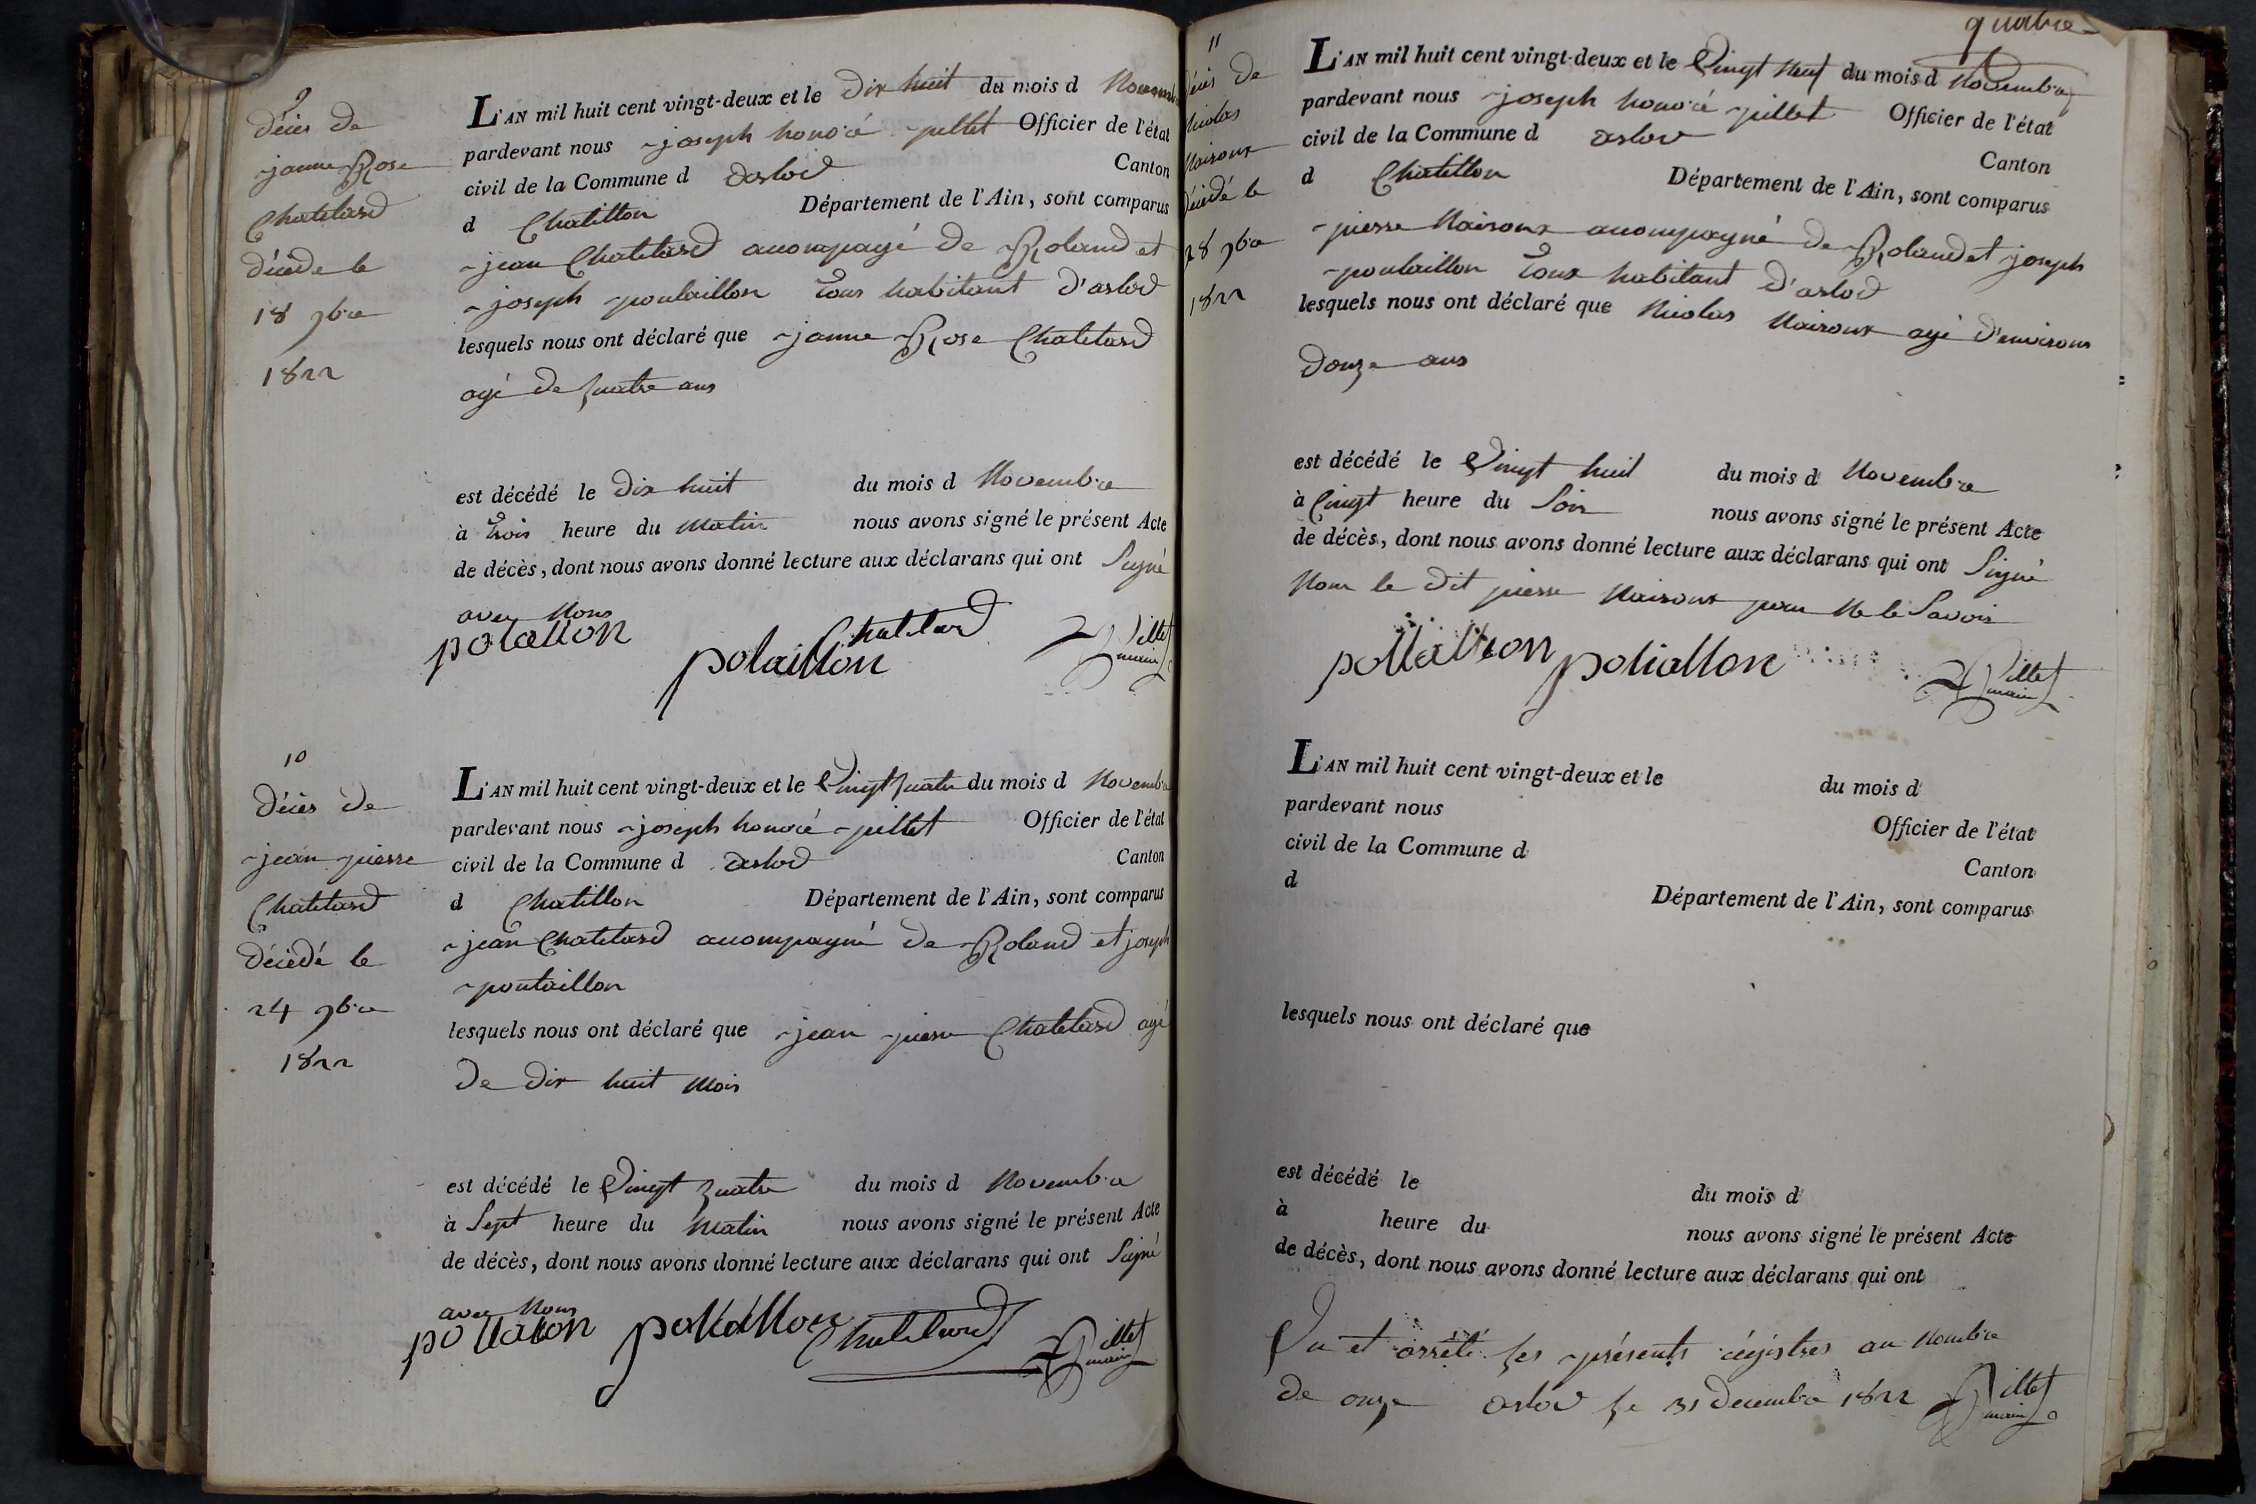 9
Décès de
janne Rose
Chatelard
décédé le
18 9bre
1822
L'AN mil huit cent vingt-deux et le Dix huit du mois d Novembre
pardevant nous joseph honoré pillet Officier de l'état
civil de la Commune d arlod Canton
d Chatillon Département de l'Ain, sont comparus
jean Chatelard acompagé de Roland et
joseph poulaillon tous habitant d'arlod
lesquels nous ont déclaré que janne Rose Chatelard
agé de quatre ans
est décédé le dix huit du mois d Novembre
à trois heure du matin nous avons signé le présent Acte
de décès, dont nous avons donné lecture aux déclarans qui ont Signé
avec Nous
polallon polaillon Chatelard Pillet
maire
10
Décès de
jean pierre
Chatelard
décédé le
24 9bre
1822
L'AN mil huit cent vingt-deux et le Vingt quatre du mois d Novembre
pardevant nous joseph honoré pillet Officier de l'état
civil de la Commune d arlod Canton
d Chatillon Département de l'Ain, sont comparus
jean Chatelard acompagné de Roland et joseph
poulaillon
lesquels nous ont déclaré que jean pierre Chatelard agé
de dix huit mois
est décédé le Vingt quatre du mois d Novembre
à Sept heure du Matin nous avons signé le présent Acte
de décès, dont nous avons donné lecture aux déclarans qui ont Signé
avec Nous
Chatelard Pillet
maire
quatre
11
décès de
Nicolas
Nairoux
décédé le
28 9bre
1822
L'AN mil huit cent vingt-deux et le Vingt Neuf du mois d Novembre
pardevant nous joseph honoré pillet Officier de l'état
civil de la Commune d arlod Canton
d Chatillon Département de l'Ain, sont comparus
pierre Nairoux acompagné de Roland et joseph
poulaillon tous habitant d'arlod
lesquels nous ont déclaré que Nicolas Nairoux agé d'environs
Douze ans
est décédé le Vingt huit du mois d Novembre
à Cinqt heure du Soir nous avons signé le présent Acte
de décès, dont nous avons donné lecture aux déclarans qui ont Signé
Non le dit pierre Nairoux pour Ne le Savoir
poliallon Pillet
maire
L'AN mil huit cent vingt-deux et le du mois d
pardevant nous Officier de l'état
civil de la Commune d Canton
d Département de l'Ain, sont comparus
lesquels nous ont déclaré que
est décédé le du mois d
à heure du nous avons signé le présent Acte
de décès, dont nous avons donné lecture aux déclarans qui ont
Vu et arrêté les présents régistres au Nombre
de onze arlod le 31 decembre 1822 Pillet
maire